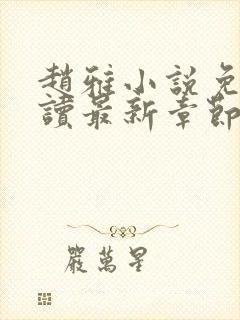 趙雅小説免
讀最新章節
嚴萬星